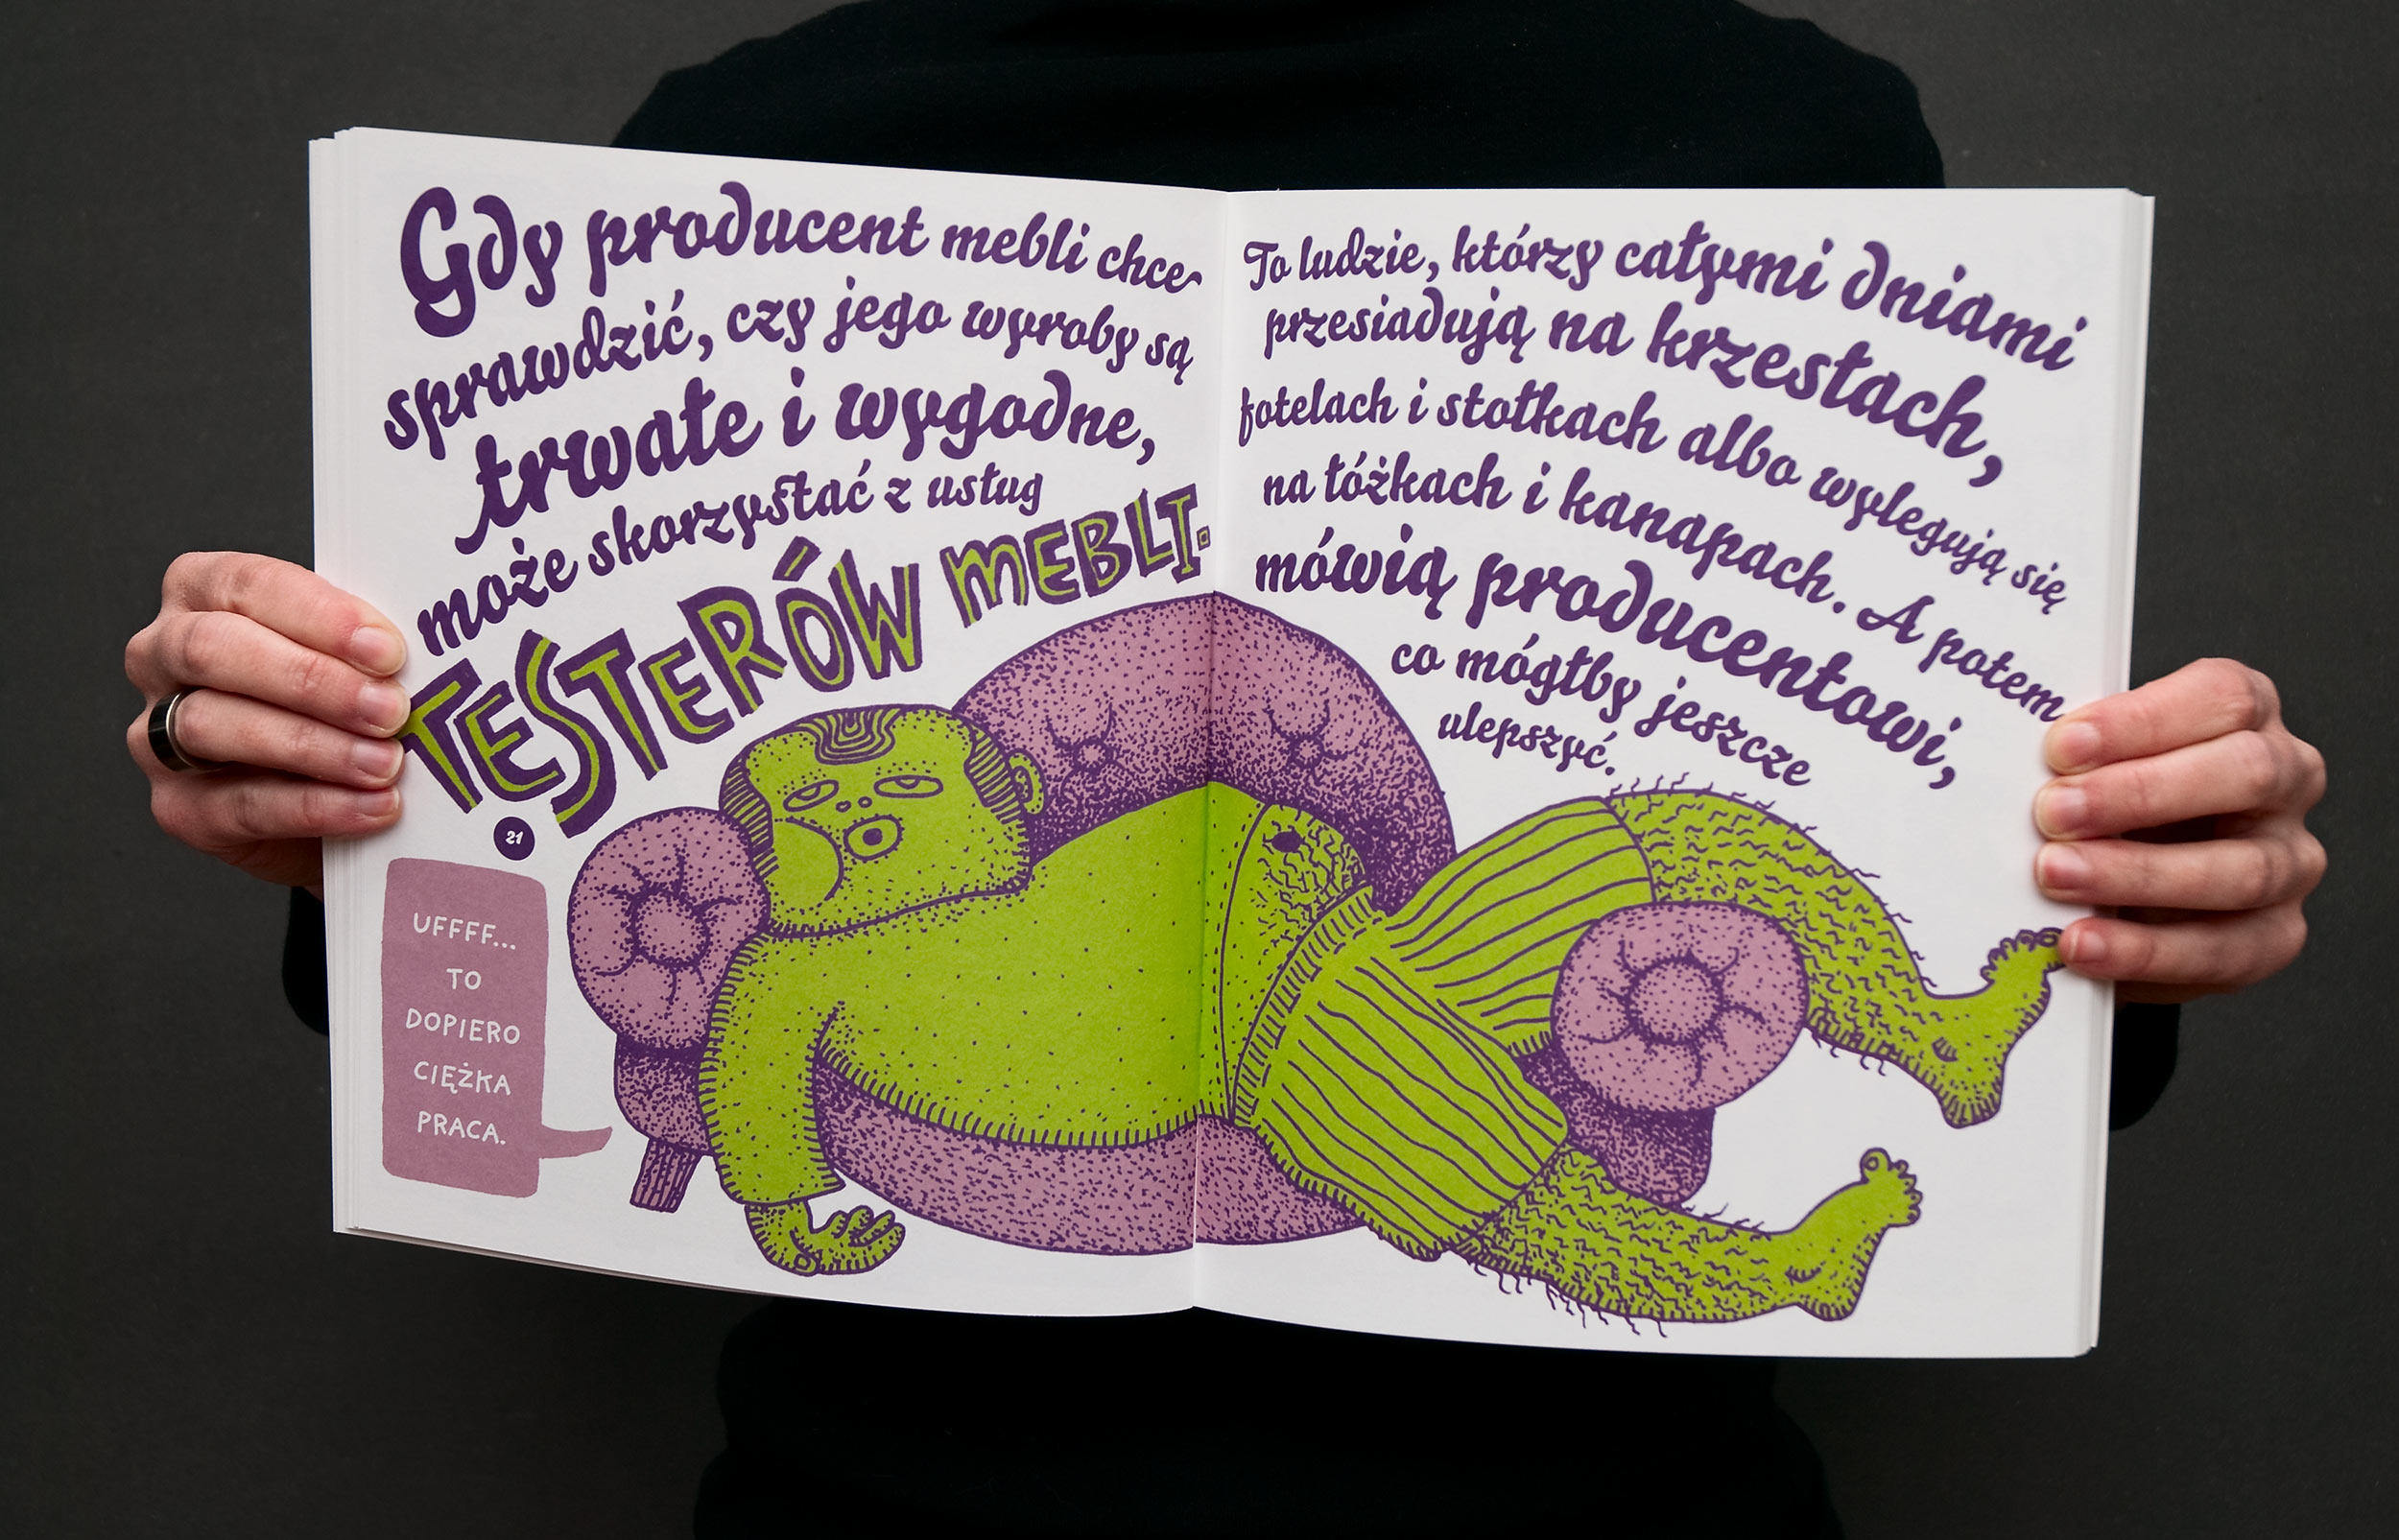 Gdy producent mebli chce
sprawdzić, czy jego wyroby są
trwałe i wygodne,
może skorzystać z usług
TESTERÓW MEBLI.
21
UFFFF...
TO
DOPIERO
CIĘŻKA
PRACA.
To ludzie, którzy całymi dniami
przesiadują na krzesłach,
fotelach i stołkach albo wylegują się
na łóżkach i kanapach. A potem
mówią producentowi,
co mógłby jeszcze
ulepszyć.